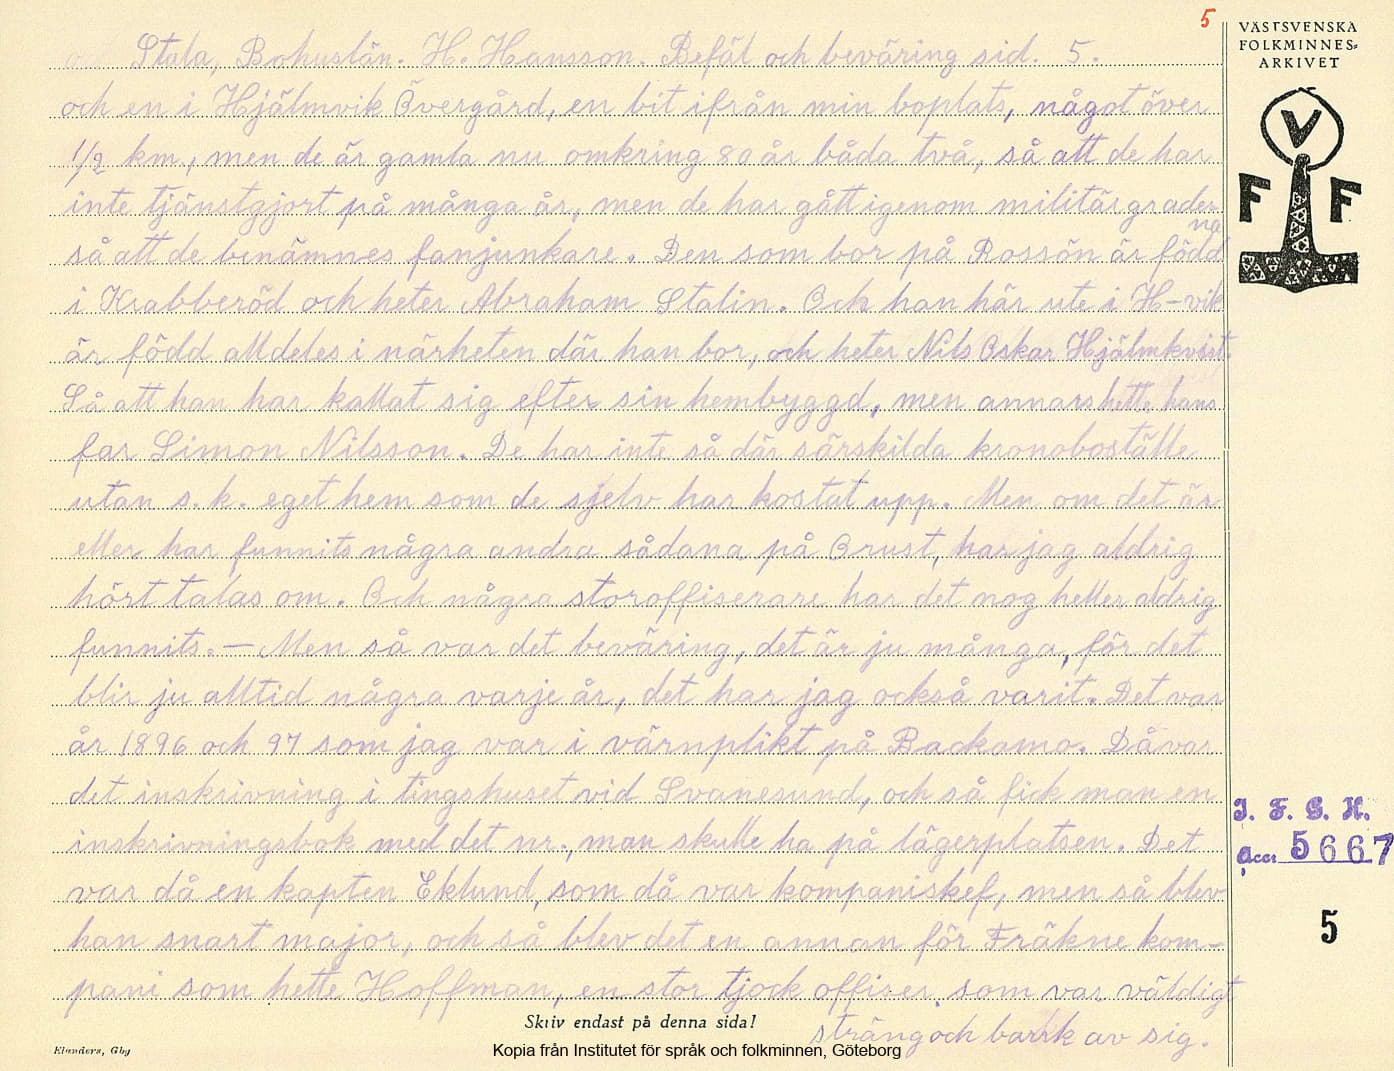 5
VÄSTSVENSKA
FOLKMINNES-
ARKIVET
V
F F
Stala, Bohuslän. H. Hansson. Befäl och beväring sid. 5.
och en i Hjälmvik Övergård, en bit ifrån min boplats, något över
1/2 km., men de är gamla nu omkring 80 år båda två, så att de har
inte tjänstgjort på många år, men de har gått igenom militärgrader-
na
så att de benämnes fanjunkare. Den som bor på Rossön är född
i Krabberöd och heter Abraham Stalin. Och han här ute i H-vik
är född alldeles i närheten där han bor, och heter Nils Oskar Hjälmkvist.
Så att han har kallat sig efter sin hembyggd, men annars hette hans
far Simon Nilsson. De har inte så där särskilda kronoboställe
utan s.k. eget hem som de sjelv har kostat upp. Men om det är
eller har funnits några andra sådana på Orust, har jag aldrig
hört talas om. Och några storoffiserare har det nog heller aldrig
funnits. — Men så var det beväring, det är ju många, för det
blir ju alltid några varje år, det har jag också varit. Det var
år 1896 och 97 som jag var i värnplikt på Backamo. Då var
det inskrivning i tingshuset vid Svanesund, och så fick man en
inskrivningsbok med det nr., man skulle ha på lägerplatsen. Det
var då en kapten Eklund, som då var kompaniskef, men så blev
han snart major, och så blev det en annan för Fräkne kom-
pani som hette Hoffman, en stor tjock offiser som var väldigt
sträng och barrk av sig.
I. F. G. H.
acc. 5667
5
Skriv endast på denna sida!
Elanders, Gbg
Kopia från Institutet för språk och folkminnen, Göteborg